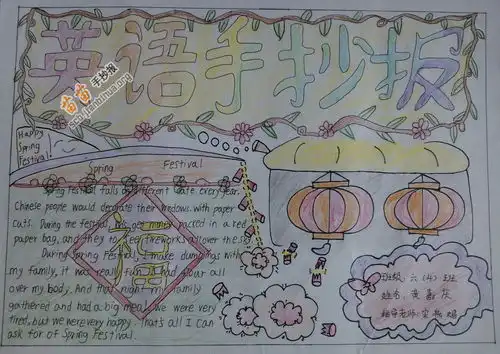 英语手抄报
Happy
Spring
Festival!
Spring Festival
Spring festival falls on different date every year.
Chinese people would decorate their windows with paper
cuts. During the festival, get money packed in a red
paper bag, and they to see fireworks all over the sky
During Spring Festival, I make dumplings with
my family, it was really fun. I had flour all
over my body. And that night my family
gathered and had a big meal. We were very
tired, but we were very happy. That's all I can
ask for of Spring Festival.
班级: 六(4)班
姓名: 黄
指导老师: